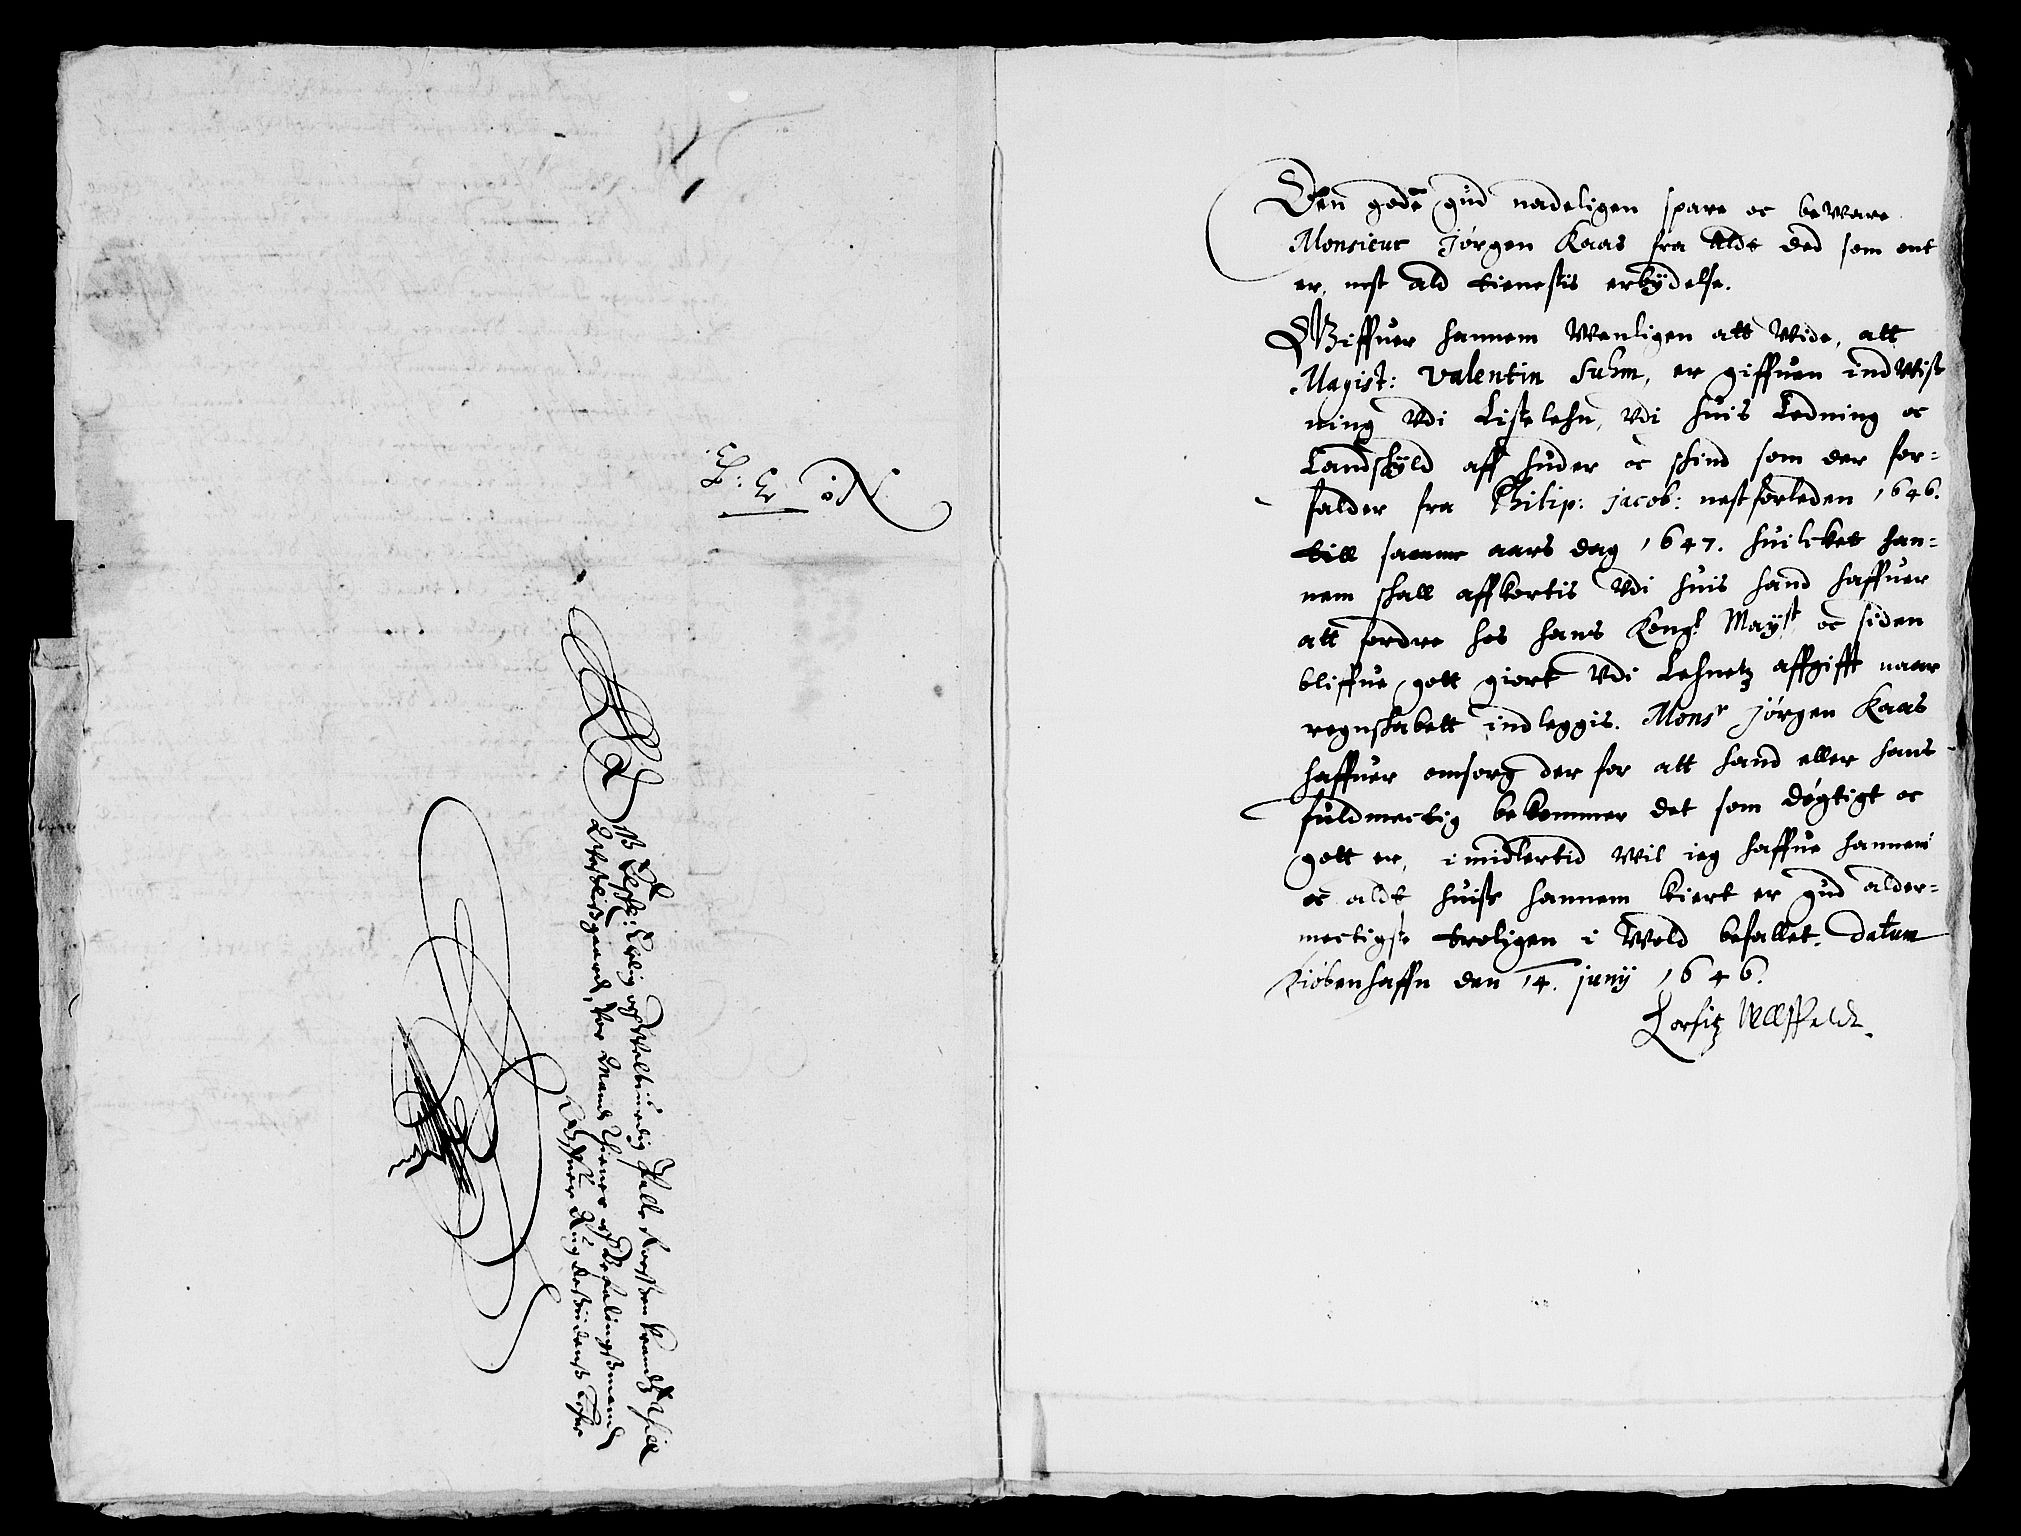 No
Den gode gud nadeligen spare oc beware
Monsieur Jørgen Kaas fra aldt ded som ont
er, nest ald tienestis erbydelse.
Giffuer hannem Wenligen att Wide, att
Magist: Valentin Suhm, er giffuen indWiss
ning Vdi Liste lehn, Vdi huis Ledning oc
Landskyld aff huder oc skind som der for-
falder fra Philip: Jacob: nest forleden 1646.
till samme aars dag 1647. huilcket han-
nem skall affkortis Vdi huis hand haffuer
att fordre hos hans Kongl Mayst oc siden
bliffue gott giort Vdi Lehnetz affgifft naar
regnskabett indleggis. Monsr Jørgen Kaas
haffuer omsorg der for att hand eller hans
fuldmectig bekommer det som døgtigt oc
gott er, imidlertid Wil jeg haffue hannem
oc aldt huiss hannem kiert er gud alder-
mectigste troligen i Wold befallet. Datum
Kiøbenhaffn den 14. Junij 1646.
Corfitz Ulffeldt.
Erlig og Welbiurdig Palle Rossenkrandtz till